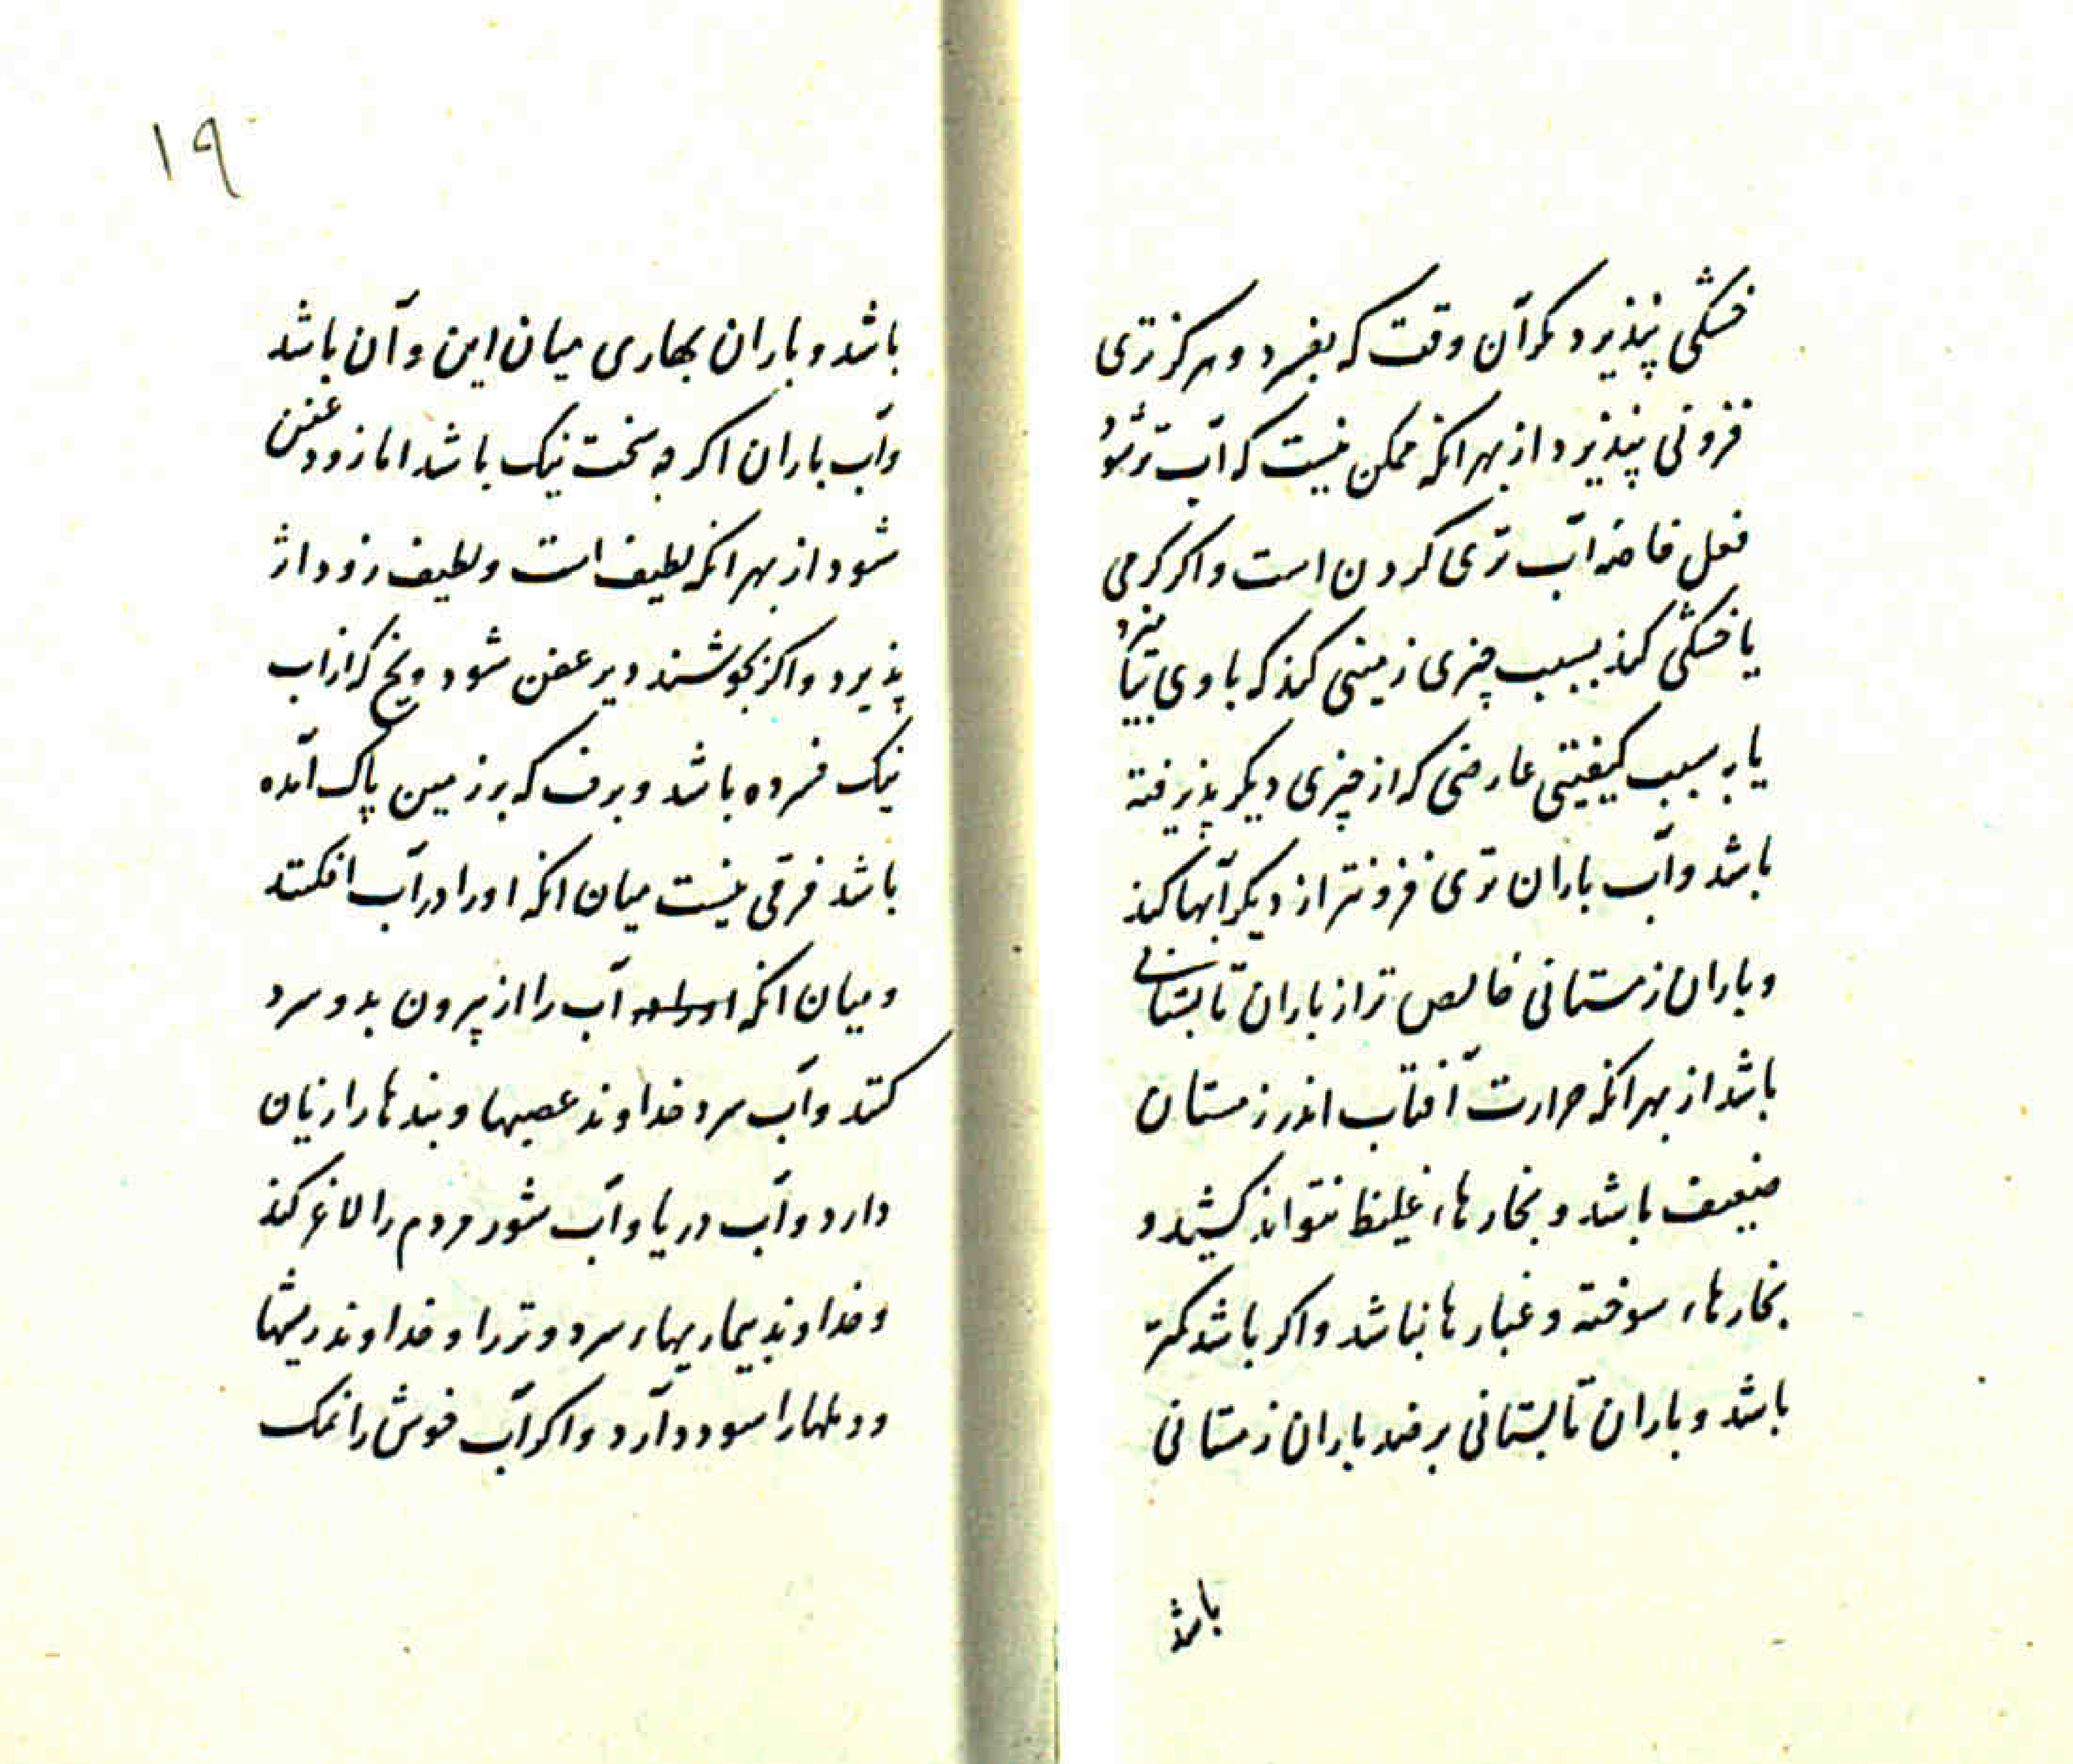 خشکی نپذیرد مکر آن وقت که بفسرد و هرکز تری
فزونی نپذیرد از بهر انکه ممکن نیست که آب ترشود
فعل خاصه آب تری کردن است و اکر کرمی
یا خشکی کند بسبب چیزی زمینی کند که با وی بیامیزد
یا به سبب کیفیتی عارضی که از چیزی دیکر پذیرفته
باشد و آب باران تری فزونتر از دیکر آبها کند
و باران زمستانی خالص تر از باران تابستانی
باشد از بهر انکه حرارت آفتاب اندر زمستان
ضعیف باشد و بخارهاء غلیظ نتواند کشید و
بخارهاء سوخته و غبارها نباشد و اکر باشد کمتر
باشد و باران تابستانی برضد باران زمستانی
باشد
۱۹
باشد و باران بهاری میان این و آن باشد
و آب باران اکر چه سخت نیک باشد اما زود عفن
شود از بهر انکه لطیف است و لطیف زود اثر
پذیرد و اکر بجوشند دیر عفن شود و یخ که از آب
نیک فسرده باشد و برف که بر زمین پاک آمده
باشد فرقی نیست میان انکه او را در آب افکنند
و میان انکه آب را از بیرون بدو سرد
کنند و آب سرد خداوند عصبها و بندها را زیان
دارد و آب دریا و آب شور مردم را لاغر کند
و خداوند بیماریهاء سرد و تر را و خداوند ریشها
و دملها را سود دارد و اکر آب خوش را نمک